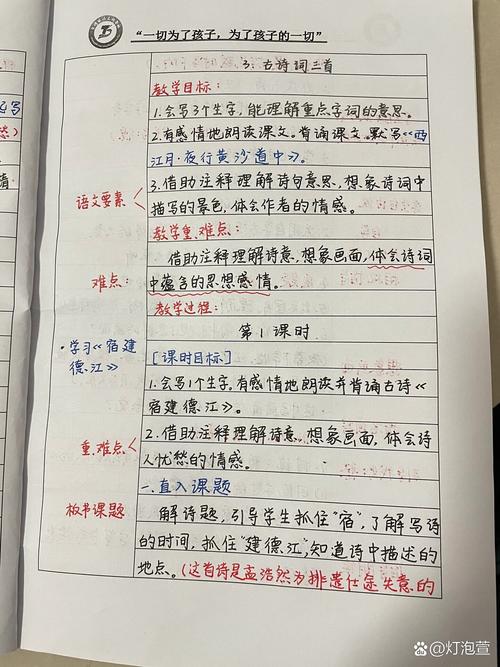 “一切为了孩子，为了孩子的一切”
3. 古诗词三首
教学目标：
1.会写3个生字，能理解重点字词的意思。
2.有感情地朗读课文。背诵课文。默写《西
江月·夜行黄沙道中》。
语文要素
3.借助注释理解诗句意思，想象诗词中
描写的景色，体会作者的情感。
教学重、难点：
借助注释理解诗意，想象画面，体会诗词
难点：
中蕴含的思想感情。
教学过程：
第1课时
·学习《宿建
德江》
[课时目标]
1.会写1个生字。有感情地朗读并背诵古诗《
宿建德江》。
重、难点
2.借助注释理解诗意，想象画面，体会诗
人忧愁的情感。
一.直入课题
板书课题
解诗题，引导学生抓住“宿”，了解写诗
的时间，抓住“建德江”，知道诗中描述的
地点。（这首诗是孟浩然为排遣仕途失意的
@灯泡萱